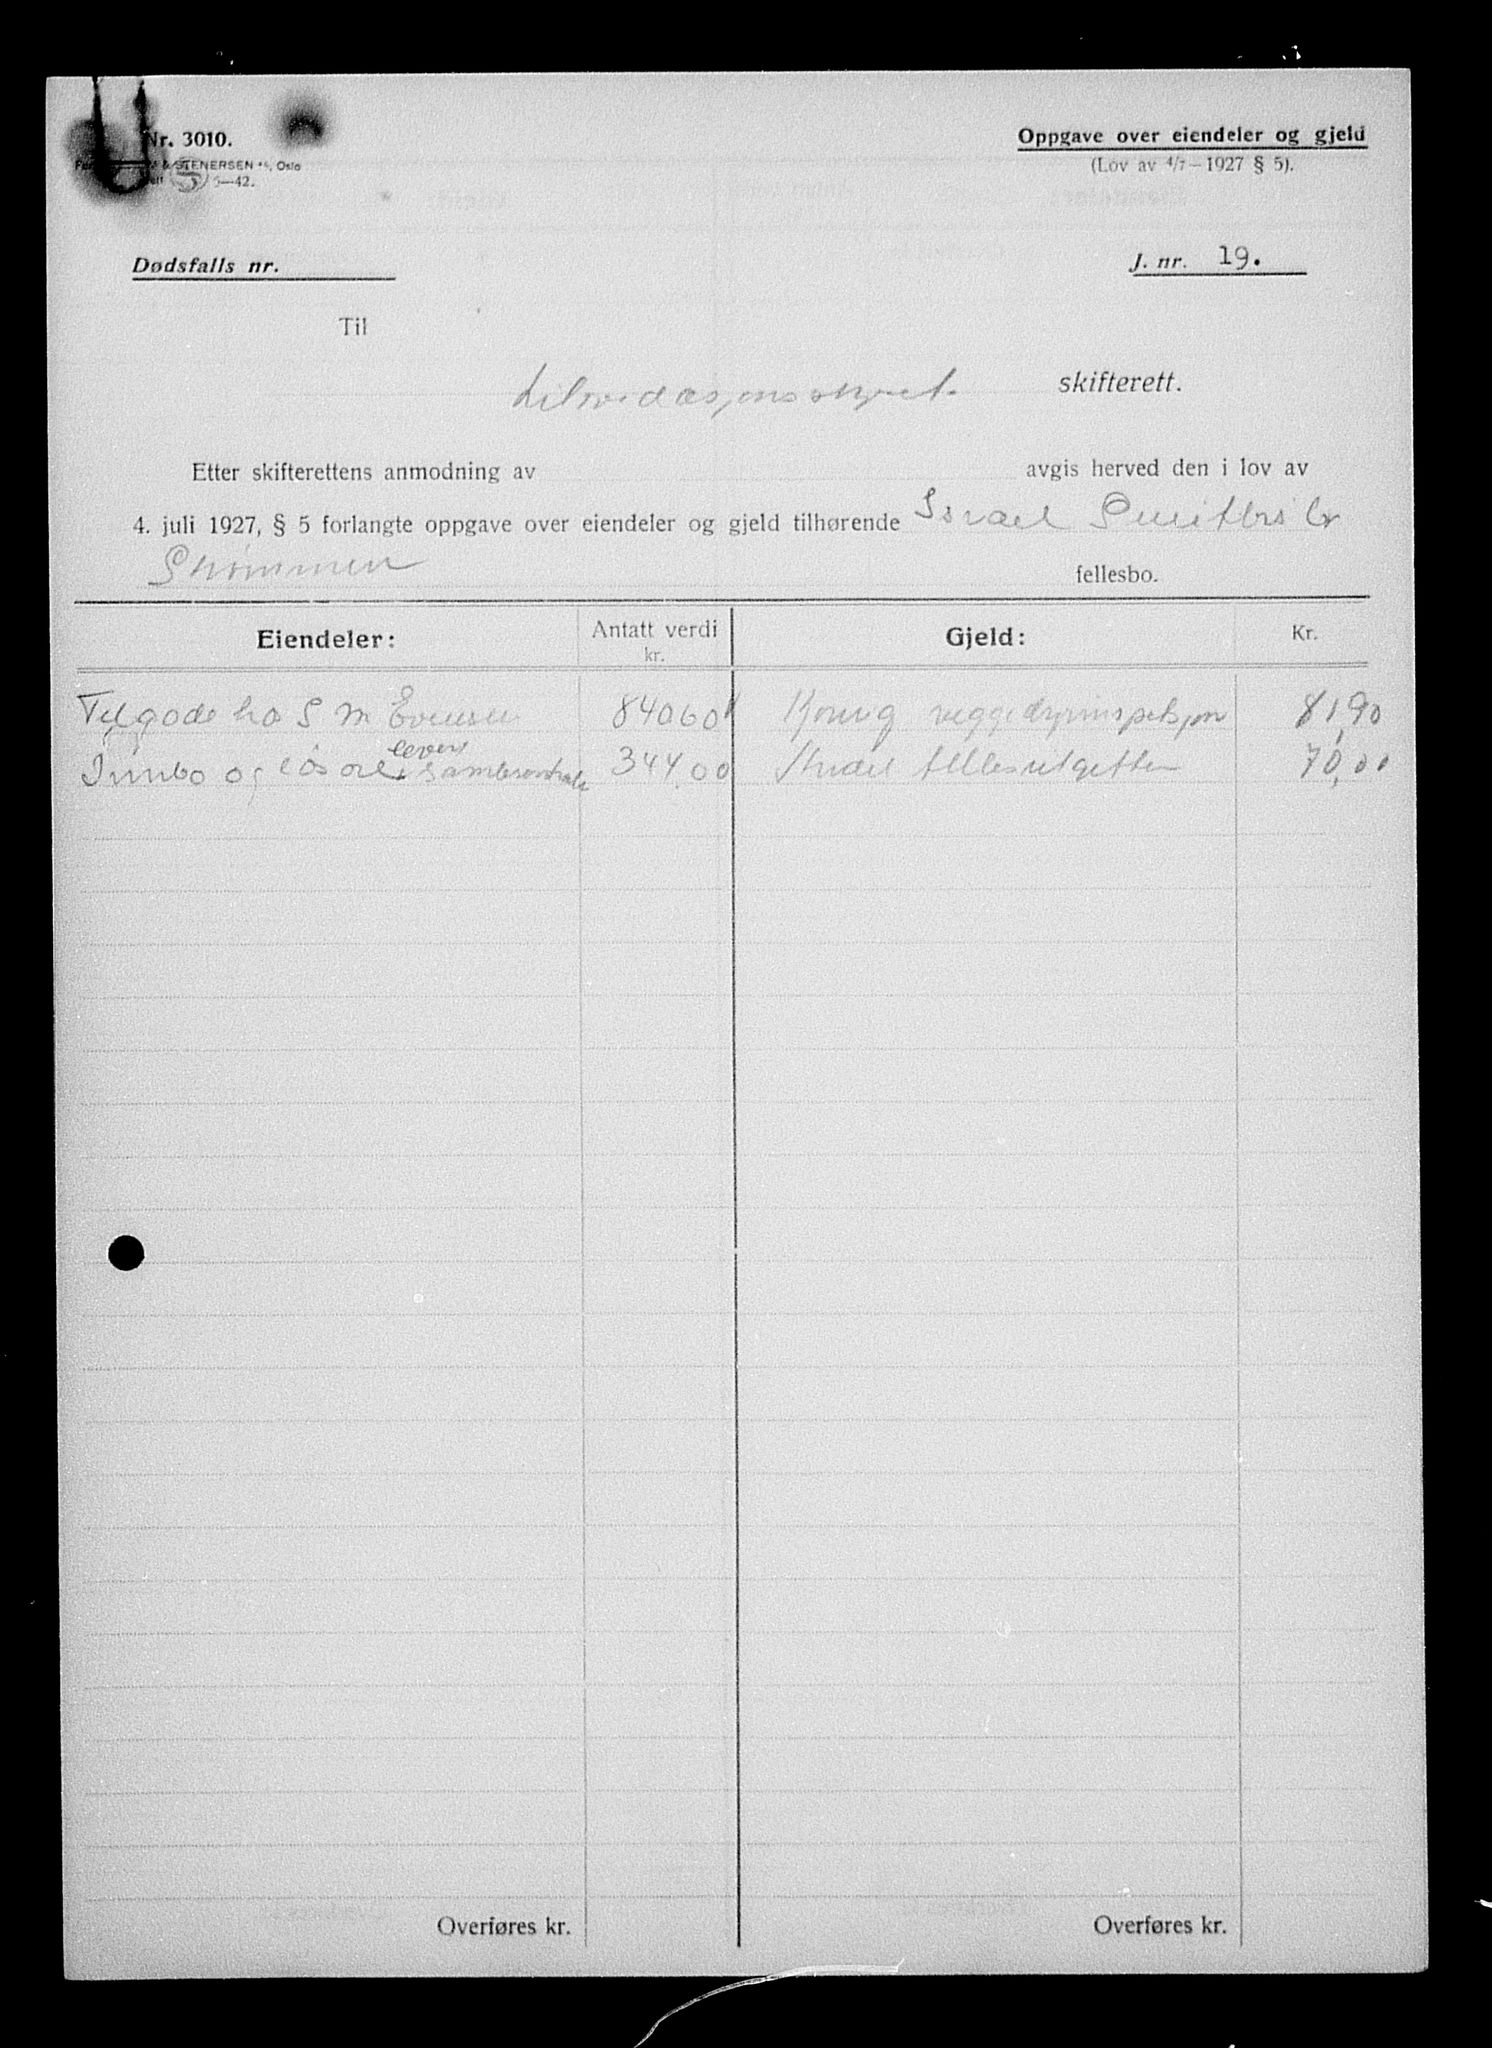 Nr. 3010.
& STENERSEN A/S, Oslo
5—42.
Oppgave over eiendeler og gjeld
(Lov av 4/7 – 1927 § 5).
Dødsfalls nr.
J. nr. 19.
Til
skifterett.
Etter skifterettens anmodning av avgis herved den i lov av
4. juli 1927, § 5 forlangte oppgave over eiendeler og gjeld tilhørende Israel
Strømmen fellesbo.
Eiendeler: Antatt verdi kr. Gjeld: Kr.
Tilgode hos S M Evensen 840 60 Kong 81,90
Innbo og løsøre levert 344,00 70,00
Overføres kr. Overføres kr.